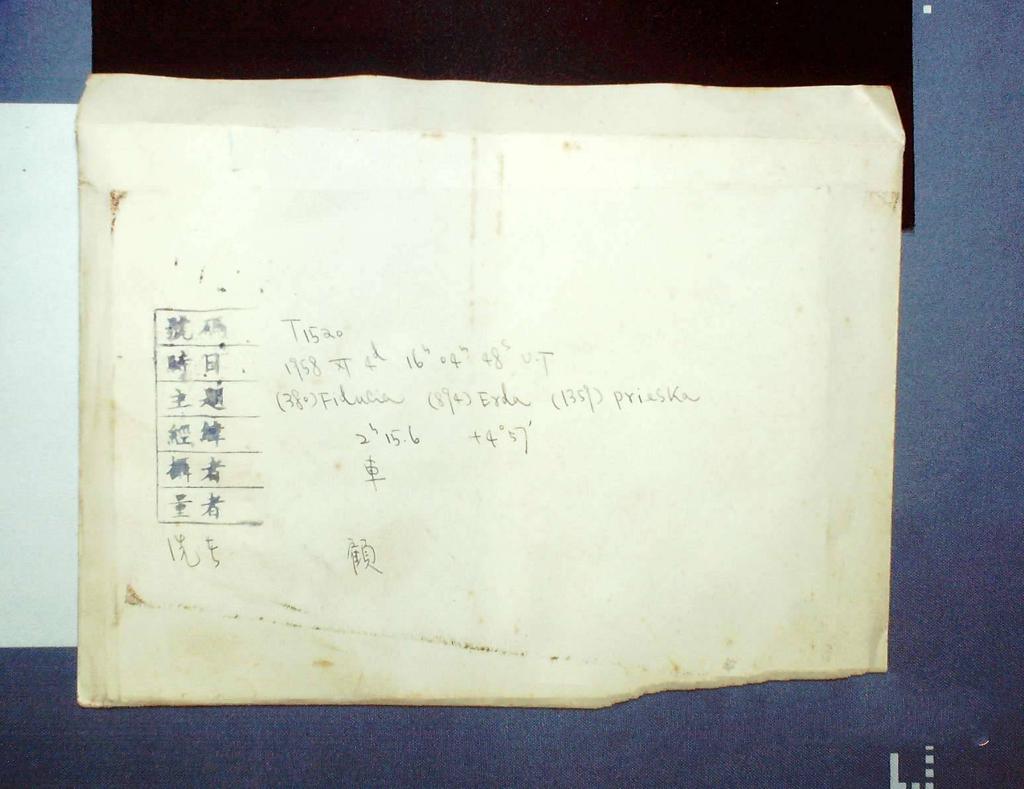 號碼 T1520
時日 1958 XI 4d 16h 04m 48s U.T
主題 (380) Fiducia (894) Erda (1359) Prieska
經緯 2h 15.6 +4°57'
攝者 車
量者
洗者 顧